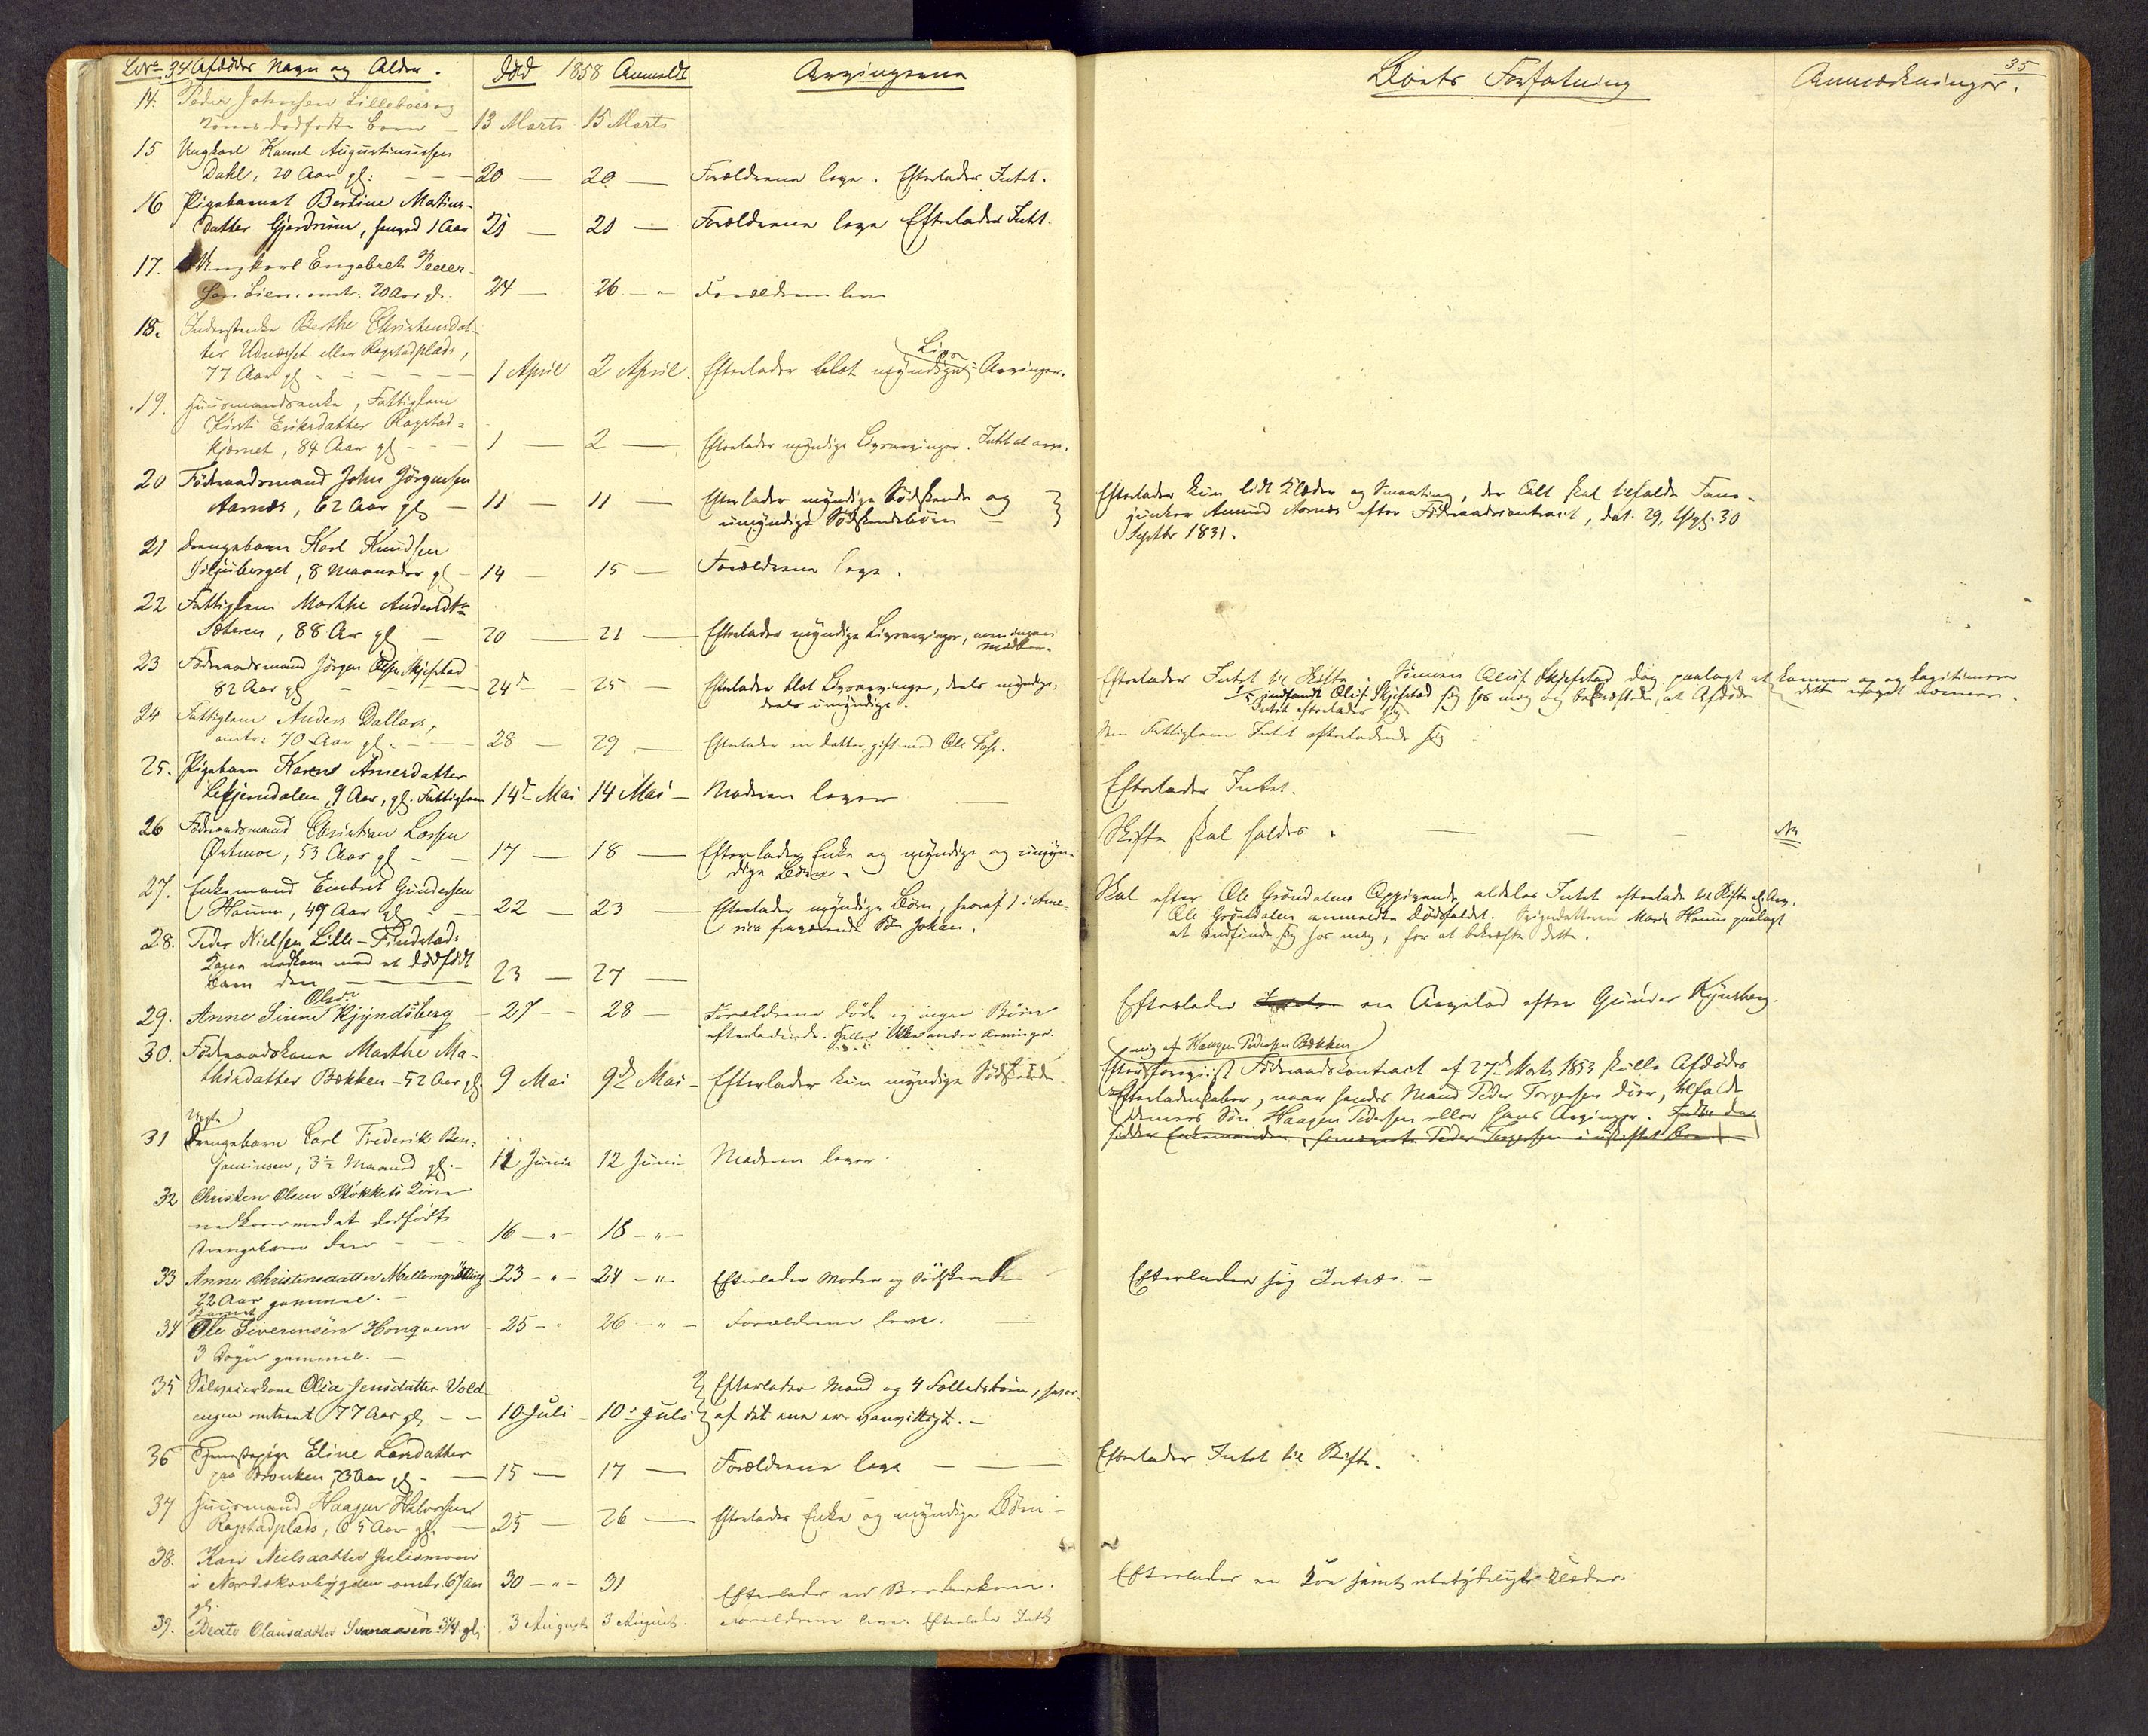 34 Afdødes Navn og Alder. Død 1858 Anmeldt Arvingerne
Boets Forfatning Anmærkninger. 35
14. Peder Johnsen
dødfødte Barn 13 Marts 15 Marts
15 Ungkarl Augustinussen
Dahl, 20 Aar gl: 20 20 Forældrene leve. Efterlader Intet.
16 Pigebarnet Bertine Matius-
datter Gjerdrum, 1 Aar 21 21 Forældrene leve Efterlader Intet.
17. Ungkarl Engebret Peder-
sen Lien omtr. 20 Aar gl. 24 26 Forældrene leve
18. Inderstenke Berthe Christensdat-
ter eller Ragstadplads, Livs
77 Aar gl 1 April 2 April. Efterlader blot myndige Arvinger.
19. Huusmandsenke, Fattiglem
Kirsti Eriksdatter Ragstad-
kjernet, 84 Aar gl 1 2 Efterlader myndige Livsarvinger. Intet at arve.
20 Føderaadsmand John Jørgensen
Aarnæs, 62 Aar gl 11 11 Efterlader myndige Sødskende og
umyndige Sødskendebørn
Efterlader kun lidt Klæder og Smaating, der Alt skal tilfalde Fane-
junker Amund Aarnæs efter Føderaadscontract, dat. 29, thgl. 30
Septbr 1831.
21 Drengebarn Karl Knudsen
8 Maaneder gl 14 15 Forældrene leve.
22 Fattiglem Marthe Andersdtr
Sæteren, 88 Aar gl 20 21 Efterlader myndige Livsarvinger, men ingen
Midler.
23 Føderaadsmand Jørgen Olsen Skjefstad
82 Aar gl 24de 25 Efterlader blot Livsarvinger, deels myndige,
deels umyndige.
Efterlader Intet til Skifte. Sønnen Oluf Skjefstad dog paalagt at komme og legitimere
dette noget nærmere.
1/5 indfandt Oluf Skjefstad sig hos mig og bekræftede, at Afdøde
Intet efterlader sig
24 Fattiglem Anders Dallars,
omtr: 70 Aar gl. 28 29 Efterlader en Datter, gift med Ole Foss.
Som Fattiglem Intet efterladende sig
25. Pigebarn Karen Arnesdatter
9 Aar, gl. Fattiglem 14de Mai 14 Mai Moderen lever
Efterlader Intet.
26 Føderaadsmand Christian Larsen
Østmoe, 53 Aar gl 17 18 Efterlader Enke og myndige og umyn-
dige Børn.
Skifte skal holdes.
27. Enkemand Embret Gundersen
Houm, 49 Aar gl 22 23 Efterlader myndige Børn, hvoraf 1 i Ame-
rica fraværende Søn Johan.
Skal efter Ole Grøndalens Opgivende aldeles Intet efterlade til Skifte eller Arv.
Ole Grøndalen anmeldte Dødsfaldet. Marte Houm paalagt
at indfinde sig hos mig, for at bekræfte dette.
28. Peder Nielsen Lille-Findstads
Kone nedkom med et dødfødt
Barn den 23 27
29. Anne Sirene Olsdr Kjyndsberg 27 28 Forældrene døde og ingen Børn
efterladende. Heller ikke andre Arvinger.
Efterlader en Arvelod efter Gunder Kynsberg.
30. Føderaadskone Marthe Ma-
thisdatter Bekken 52 Aar gl. 9 Mai 9de Mai Efterlader kun myndige Sødskende
mig af Haagen Pedersen Bekken
Føderaadskontract af 27de Marts 1853 skulle Afdødes
Efterladenskaber, naar hendes Mand Peder Torgersen døer, tilfalde
dennes Søn Haagen Pedersen eller hans Arvinger.
31 Drengebarn Carl Frederik Ben-
jaminsen, 3½ Maaned gl. 11 Juni 12 Juni Moderen lever.
32 Christen Olsen Stokkets Kone
nedkom med et dødfødt
Drengebarn den 16 18
33 Anne Christensdatter Mellemgrøtting 23 24 Efterlader Moder og Sødskende
22 Aar gammel.
Efterlader sig Intet.
34 Barnet
Ole Siverensen Honqvern 25 26 Forældrene leve.
3 Dage gammel.
35 Selveierkone Olia Jensdatter Vold-
engen omtrent 77 Aar gl 10 Juli 10de Juli Efterlader Mand og 4 Fælledsbørn, hvor-
af det ene er vanvittigt.
36 Tjenestepige Eline Larsdatter
paa Brouken, 23 Aar gl 15 17 Forældrene leve
Efterlader Intet til Skifte.
37 Huusmand Haagen Halvorsen
Ragstadplads, 65 Aar gl. 25 26 Efterlader Enke og myndige Børn
38. Kari Nielsdatter Julismoen
i Nordskovbygden omtr. 67 Aar
gl. 30 31 Efterlader en Broderkone.
Efterlader en Koe samt ubetydelige Klæder.
39. Beate Olausdatter Svenaasen 3/4 gl. 3 August 3 August. Forældrene leve. Efterlader Intet